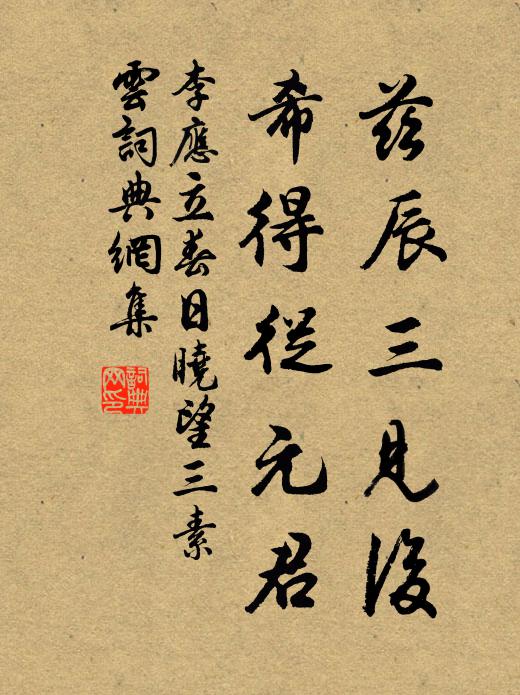 茲辰三見後
希得從元君
李應立春日曉望三素
雲詞典網集
詞典
網印